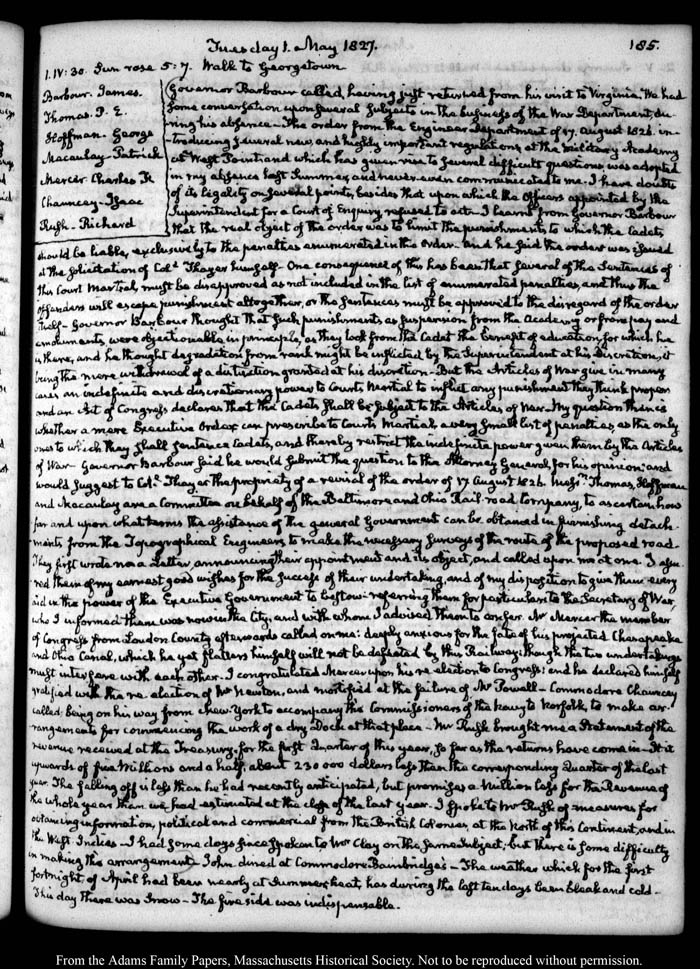 Tuesday 1. May 1827.
185.
1. IV:30. Sun rose 5:7. Walk to Georgetown
Barbour. James
Thomas. P. E.
Hoffman. George
Macaulay. Patrick
Mercer Charles F.
Chauncey. Isaac
Rush. Richard
Governor Barbour called, having just returned from his visit to Virginia. We had
some conversation upon several subjects in the business of the War Department, du-
ring his absence. The order from the Engineer Department of 17. August 1826. in-
troducing several new, and highly important regulations, at the Military Academy
at West Point, and which has given rise to several difficult questions was adopted
in my absence last Summer, and never even communicated to me. I have doubts
of its legality on several points, besides that upon which the Officers appointed by the
Superintendent for a Court of Enquiry, refused to act. I learnt from Governor Barbour
that the real object of the order was to limit the punishments, to which the Cadets,
should be liable, exclusively to the penalties enumerated in the order. And he said the order was issued
at the solicitation of Coll. Thayer himself. One consequence of this has been that several of the Sentences of
this Court Martial, must be disapproved as not included in the list of enumerated penalties, and thus the
offenders will escape punishment altogether, or the Sentences must be approved to the disregard of the order
itself. Governor Barbour thought that such punishments as suspension from the Academy or from pay and
emoluments, were objectionable in principle, as they took from the Cadet the benefit of education, for which he
is there, and he thought degradation from rank might be inflicted by the Superintendent at his discretion, it
being the mere withdrawal of a distinction granted at his discretion. But the Articles of War give in many
cases an indefinite and discretionary power to Courts Martial to inflict any punishment they think proper
and an Act of Congress declares that the Cadets shall be subject to the Articles of War. My question then is
whether a mere Executive Order can prescribe to Courts Martial a very small list of penalties, as the only
ones to which they shall sentence Cadets, and thereby restrict the indefinite power given them by the Articles
of War. Governor Barbour said he would submit the question to the Attorney General, for his opinion; and
would suggest to Coll. Thayer the propriety of a revisal of the order of 17 August 1826. Messrs. Thomas, Hoffman
and Macaulay are a Committee on behalf of the Baltimore and Ohio Rail-road Company, to ascertain how
far and upon what terms the assistance of the general Government can be obtained in furnishing detach-
ments from the Topographical Engineers to make the necessary surveys of the route of the proposed road.
They first wrote me a Letter, announcing their appointment and its object, and called upon me at one. I assu-
red them of my earnest good wishes for the success of their undertaking, and of my disposition to give them every
aid in the power of the Executive Government to bestow. referring them for particulars to the Secretary of War,
who I informed them was now in the City, and with whom I advised them to confer. Mr Mercer the member
of Congress from Loudon County afterwards called on me: deeply anxious for the fate of his projected Chesapeake
and Ohio Canal, which he yet flatters himself will not be defeated by this Railway, though the two undertakings
must interfere with each other. I congratulated Mercer upon his re-election to Congress: and he declared himself
gratified with the re-election of Mr Newton, and mortified at the failure of Mr Powell. Commodore Chauncey
called; being on his way from New-York to accompany the Commissioners of the Navy to Norfolk, to make ar-
rangements for commencing the work of a dry Dock at that place. Mr Rush brought me a Statement of the
revenue received at the Treasury, for the first Quarter of this year, so far as the returns have come in. It is
upwards of five Millions and a half; about 230000 dollars less than the corresponding Quarter of the last
year. The falling off is less than he had recently anticipated, but promises a Million less for the Revenue of
the whole year than we had estimated at the close of the last year. I spoke to Mr Rush of measures for
obtaining information, political and commercial from the British Colonies, at the North of this Continent, and in
the West Indies. I had some days since spoken to Mr Clay on the same subject; but there is some difficulty
in making the arrangement. John dined at Commodore Bainbridge's. The weather which for the first
fortnight of April had been nearly at Summer heat, has during the last ten days been bleak and cold.
This day there was Snow. The fire side was indispensable.
From the Adams Family Papers, Massachusetts Historical Society. Not to be reproduced without permission.